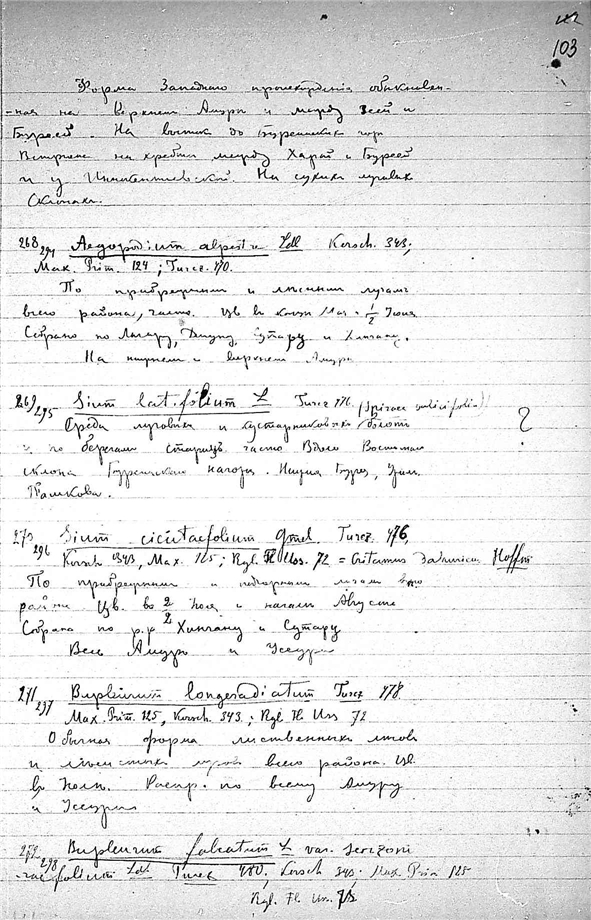 103
Форма Западнаго происхожденія обыкновен-
-ная на Верхнем Амуре и между Зеей и
Буреей. На восток до Буреинских гор
Встречена на хребте между Харой и Буреей
и у Иннокентьевской. На сухих луговых
склонах.
268 294 Aegopodium alpestre Ldl Korsh. 343;
Max. Prim. 124; Turcz. 470.
По прибрежным и лесным лугам
всего района, часто. Цв в конце Мая - 1/2 Июня
Собрано по Лагару, Сутару и Хингану.
На нижнем и верхнем Амуре
269 295 Sium latifolium L Turcz 476 (Spiraea salicifolia) ?
Среди луговых и кустарниковых болот
и по берегам стариц часто Вдоль Восточнаго
склона Буреинскаго нагорья. Нижняя Бурея, Урил,
Пашкова.
296 Sium cicutaefolium Gmel Turcz. 476,
Korsh 343, Max. 125; Rgl. Fl Uss. 72 = Critamus dahuricus Hoffm
По прибрежным и лугам
района Цв. во 2 Июля и начале Августа
Собрано по р.р Хингану и Сутару
Весь Амур и Уссури
271 297 Bupleurum longeradiatum Turcz 478.
Max. Prim. 125, Korsh. 343; Rgl Fl Uss 72
Обычная форма лиственных лесов
и лесистых лугов всего района. Цв.
в Июле. Распр. по всему Амуру
и Уссури
272 298 Bupleurum falcatum L var. scorzone
raefolium Ldl Turcz 480; Korsh 343. Max Prim 125
Rgl. Fl. Uss. 73